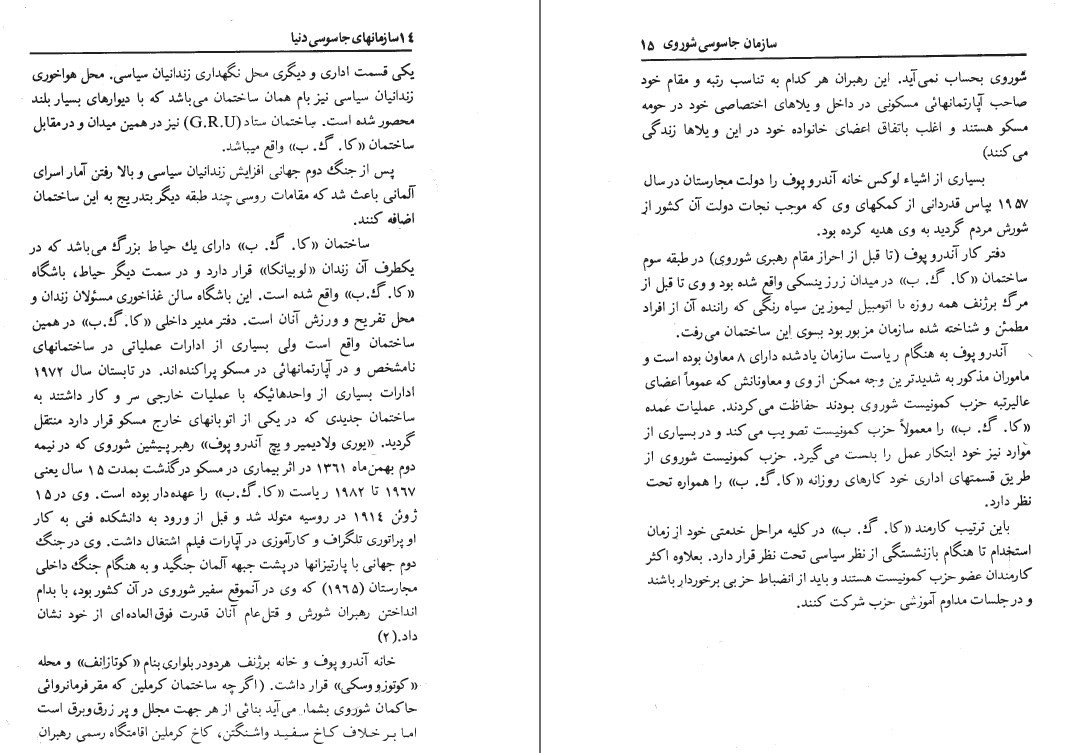 ۱۴ سازمانهای جاسوسی دنیا
یکی قسمت اداری و دیگری محل نگهداری زندانیان سیاسی. محل هواخوری
زندانیان سیاسی نیز بام همان ساختمان می‌باشد که با دیوارهای بسیار بلند
محصور شده است. ساختمان ستاد (G.R.U) نیز در همین میدان و در مقابل
ساختمان «کا. گ. ب» واقع میباشد.
پس از جنگ دوم جهانی افزایش زندانیان سیاسی و بالا رفتن آمار اسرای
آلمانی باعث شد که مقامات روسی چند طبقه دیگر بتدریج به این ساختمان
اضافه کنند.
ساختمان «کا. گ. ب» دارای یك حیاط بزرگ می‌باشد که در
یکطرف آن زندان «لوبیانکا» قرار دارد و در سمت دیگر حیاط، باشگاه
«کا. گ.ب» واقع شده است. این باشگاه سالن غذاخوری مسؤلان زندان و
محل تفریح و ورزش آنان است. دفتر مدیر داخلی «کا. گ.ب» در همین
ساختمان واقع است ولی بسیاری از ادارات عملیاتی در ساختمانهای
نامشخص و در آپارتمانهائی در مسکو پراکنده‌اند. در تابستان سال ۱۹۷۲
ادارات بسیاری از واحدهائیکه با عملیات خارجی سر و کار داشتند به
ساختمان جدیدی که در یکی از اتوبانهای خارج مسکو قرار دارد منتقل
گردید. «یوری ولادیمیر ویچ آندرو پوف» رهبر پیشین شوروی که در نیمه
دوم بهمن‌ماه ۱۳۶۱ در اثر بیماری در مسکو درگذشت بمدت ۱۵ سال یعنی
۱۹۶۷ تا ۱۹۸۲ ریاست «کا. گ.ب» را عهده‌دار بوده است. وی در ۱۵
ژوئن ۱۹۱۴ در روسیه متولد شد و قبل از ورود به دانشکده فنی به کار
اوپراتوری تلگراف و کارآموزی در آپارات فیلم اشتغال داشت. وی در جنگ
دوم جهانی با پارتیزانها در پشت جبهه آلمان جنگید و به هنگام جنگ داخلی
مجارستان (۱۹۶۵) که وی در آنموقع سفیر شوروی در آن کشور بود، با بدام
انداختن رهبران شورش و قتل‌عام آنان قدرت فوق‌العاده‌ای از خود نشان
داد.(۲)
خانه آندرو پوف و خانه برژنف هردودر بلواری بنام «کوتازانف» و محله
«کوتوزووسکی» قرار داشت. (اگر چه ساختمان کرملین که مقر فرمانروائی
حاکمان شوروی بشمار می‌آید بنائی از هر جهت مجلل و پر زرق وبرق است
اما بر خلاف کاخ سفید واشنگتن، کاخ کرملین اقامتگاه رسمی رهبران
سازمان جاسوسی شوروی ۱۵
شوروی بحساب نمی‌آید. این رهبران هر کدام به تناسب رتبه و مقام خود
صاحب آپارتمانهائی مسکونی در داخل و یلاهای اختصاصی خود در حومه
مسکو هستند و اغلب باتفاق اعضای خانواده خود در این و یلاها زندگی
می‌کنند)
بسیاری از اشیاء لوکس خانه آندرو پوف را دولت مجارستان در سال
۱۹۵۷ بپاس قدردانی از کمکهای وی که موجب نجات دولت آن کشور از
شورش مردم گردید به وی هدیه کرده بود.
دفتر کار آندرو پوف (تا قبل از احراز مقام رهبری شوروی) در طبقه سوم
ساختمان «کا. گ. ب» در میدان زرژینسکی واقع شده بود و وی تا قبل از
مرگ برژنف همه روزه با اتومبیل لیموزین سیاه رنگی که راننده آن از افراد
مطمئن و شناخته شده سازمان مزبور بود بسوی این ساختمان می‌رفت.
آندرو پوف به هنگام ریاست سازمان یادشده دارای ۸ معاون بوده است و
ماموران مذکور به شدیدترین وجه ممکن از وی و معاونانش که عموماً اعضای
عالیرتبه حزب کمونیست شوروی بودند حفاظت می‌کردند. عملیات عمده
«کا. گ. ب» را معمولاً حزب کمونیست تصویب می‌کند و در بسیاری از
موارد نیز خود ابتکار عمل را بدست می‌گیرد. حزب کمونیست شوروی از
طریق قسمتهای اداری خود کارهای روزانه «کا. گ. ب» را همواره تحت
نظر دارد.
باین ترتیب کارمند «کا. گ. ب» در کلیه مراحل خدمتی خود از زمان
استخدام تا هنگام بازنشستگی از نظر سیاسی تحت نظر قرار دارد. بعلاوه اکثر
کارمندان عضو حزب کمونیست هستند و باید از انضباط حزبی برخوردار باشند
و در جلسات مداوم آموزشی حزب شرکت کنند.